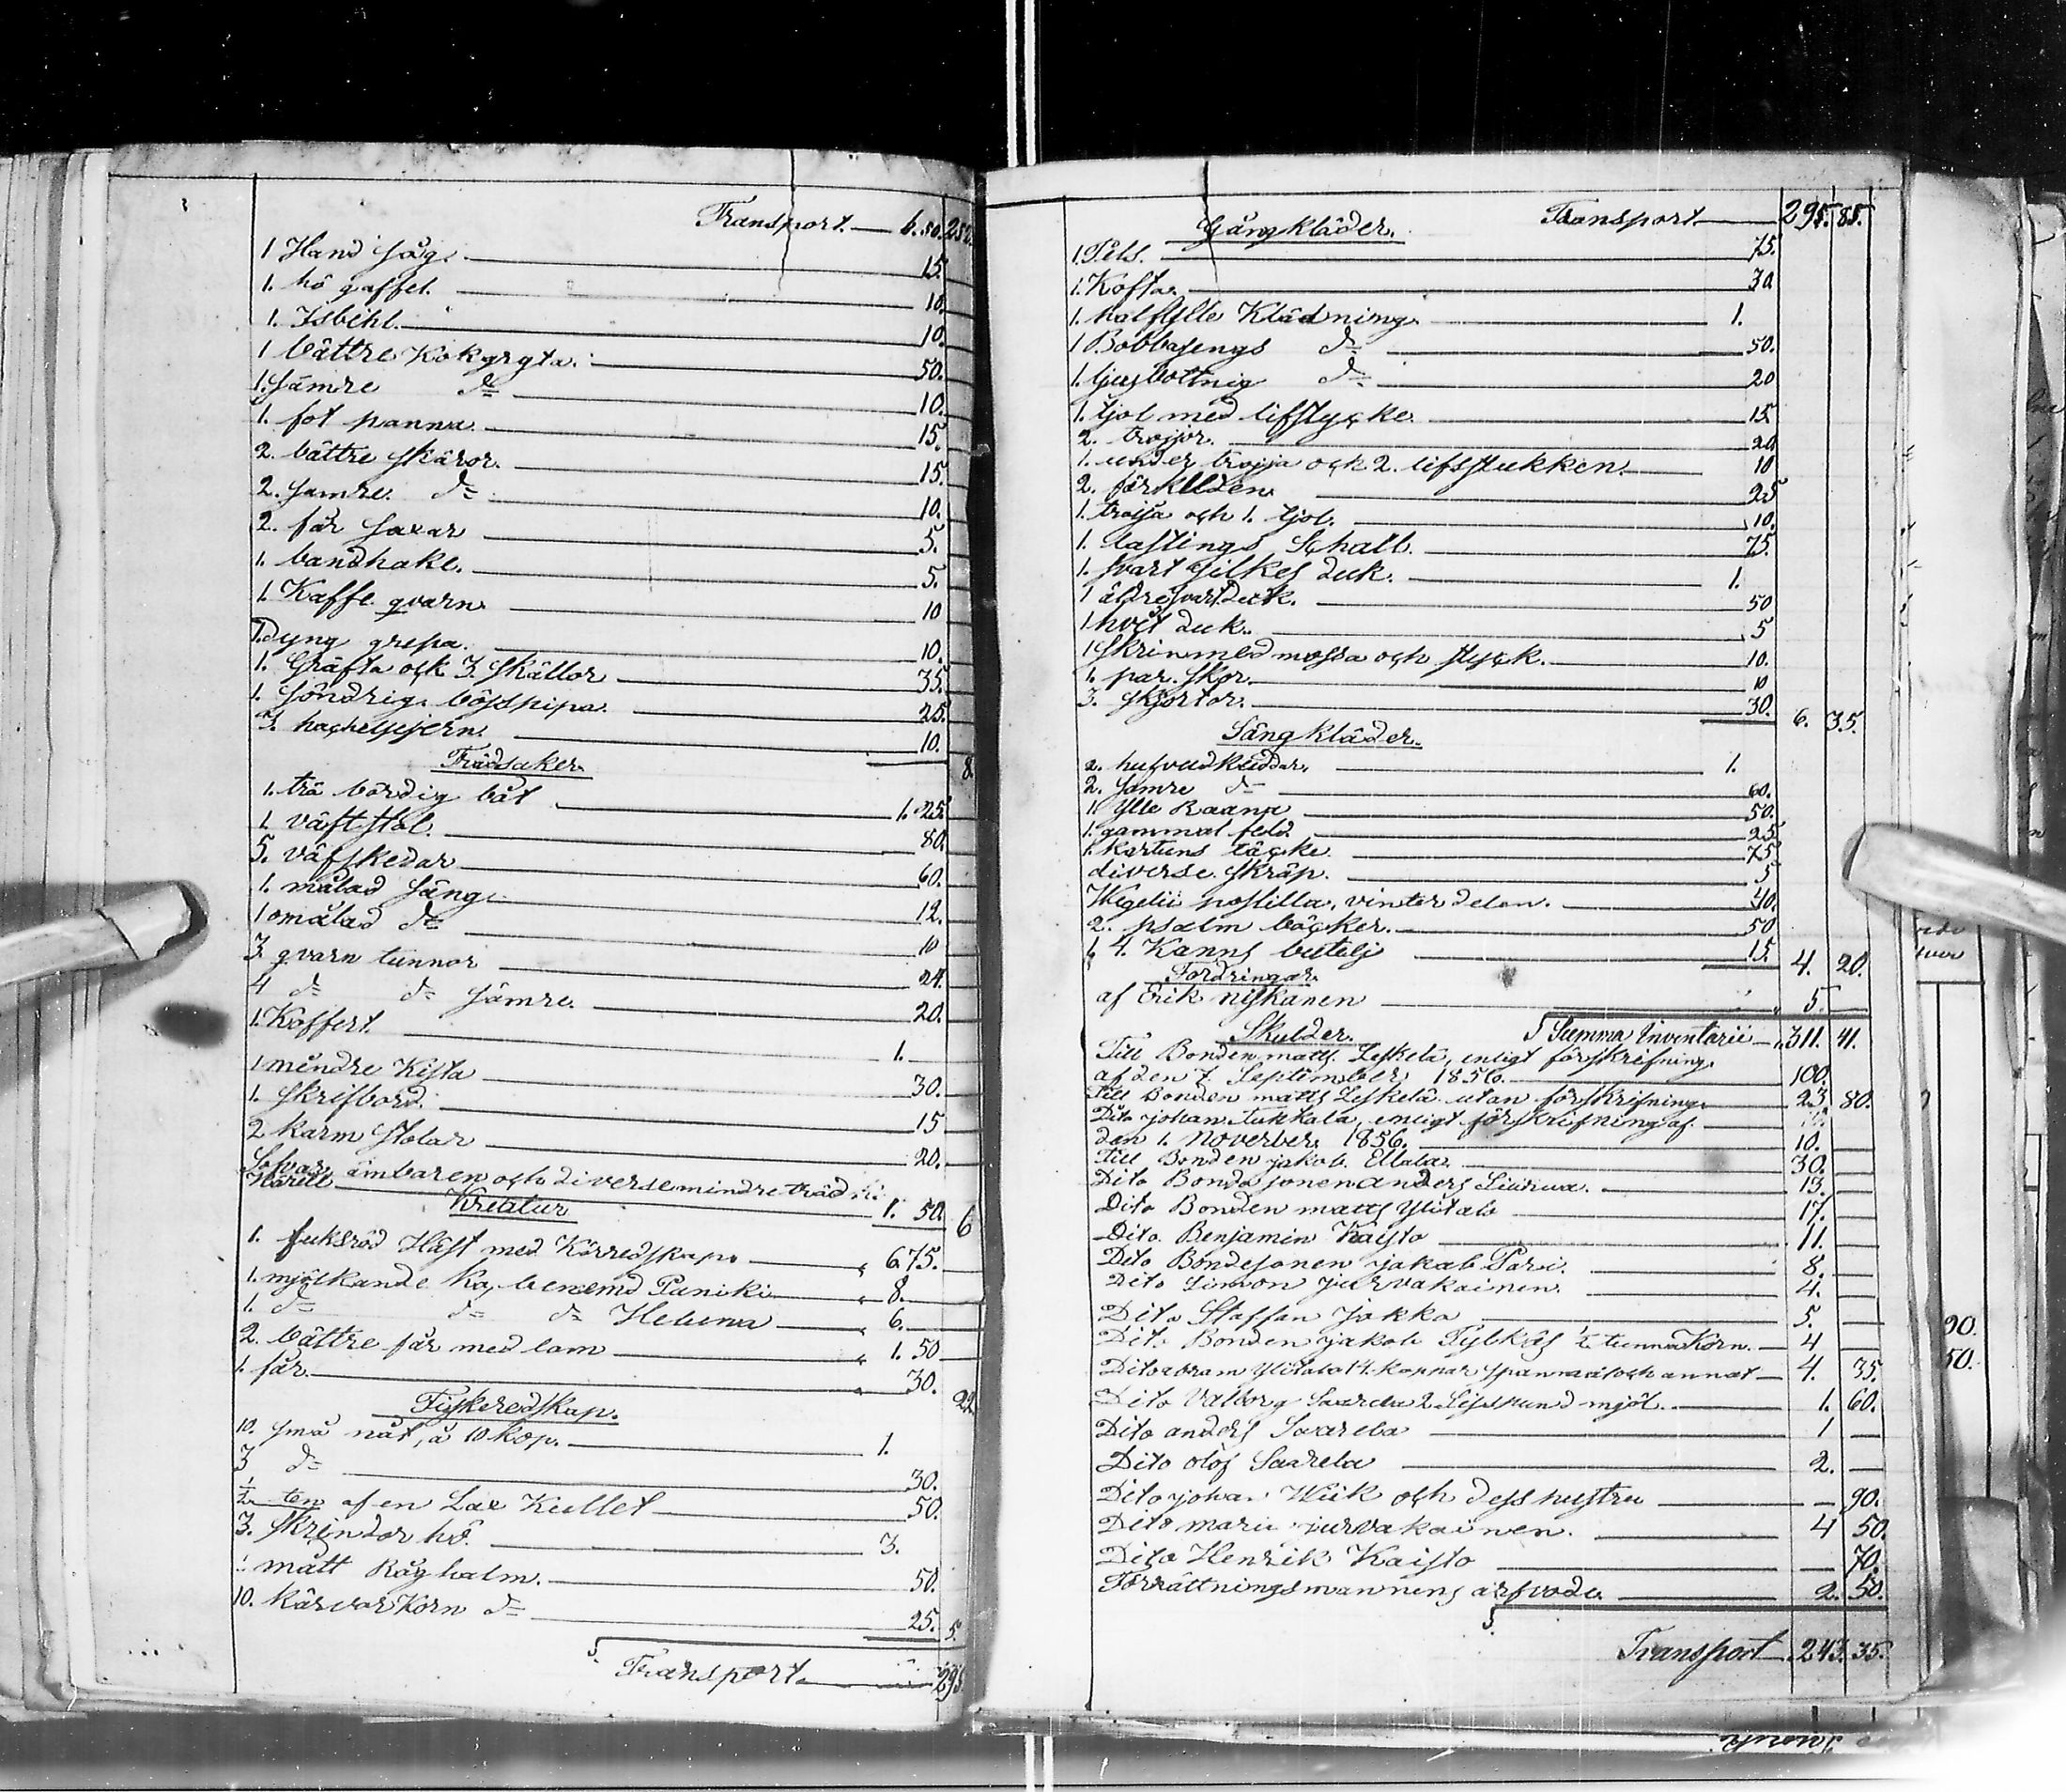 Transport 6. 50. 252.
1 Hand såg. 15.
1. hö gaffel. 10.
1. Isbihl. 10.
1 bättre Kokgryta. 50.
1. sämre do 10.
1. fot panna. 15.
2. bättre skäror. 15.
2. samre. do 10.
2. får saxar 5.
1. bandhake. 5.
1. Kaffe qvarn 10
1. dyng grepa. 10.
1. Gräfta och 3. skällor 35.
1. söndrig. bösspipa. 25.
3. hachelsejern. 10.
8.
Trädsaker
1. trä bördig båt 1. 25.
1. väfstol. 80.
5. väfskedar 60.
1. målad säng. 12.
1 omålad do 10
3. qvarn tunnor 24.
4 do do sämre. 20.
1. Koffert. 1.
1 mindre Kista 30.
1. skrifbord. 15
2 karm stolar 20.
ämbaren och diverse mindre träd
1. 50. 6
Kreatur
1. fuksröd Häst med Körredskap 6. 75.
1. mjölkande ko, benemd Puniki 8.
1. do do do Heluna 6.
2. bättre får med lam 1. 50
1. får. 30. 22.
Fiskeredskap.
10. små nät, à 10 kop. 1.
3 do 30.
1/2 ten af en Lax Kullet 50.
3. skrindor hö. 3.
mått Råghalm. 50.
10. kärvar Korn do 25. 5.
Transport 295
Transport 295. 85.
Gångkläder.
1. Pels. 75.
1. Kofta. 30.
1. halfylle Klädning. 1.
1 Bobbasengs do 50.
1. ljusbottnig do 20
1. tjol med lifstycke. 15.
2. trojor. 20.
1. under trojja och 2. lifsstukken. 10
2. förkläden. 25
1. troija och 1. tjol. 10.
1. lastings Schall. 75.
1. svart silkes duk. 1.
1 äldre svart duk. 50
1 hvit duk. 5
1 skrin med mossa och styck. 10.
1. par. skor 10
3. skjortor. 30. 6. 35.
Sängkläder.
2. hufvudkuddar. 1.
2. samre do 60.
1. Ylle Raana 50.
1. gammal feld. 25.
1. kartuns täcke. 75
diverse. skräp. 5
Wegelii postilla, vinter delen. 40.
2. psalm böcker. 50
1. 4. Kanns butelj 15. 4. 20.
Fordringar.
af Erik niskanen 5.
Summa Inventarii 311. 41.
Skulder.
Till Bonden matts Leskelä, enligt förskrifning.
af den 7. September 1856. 100.
Till Bonden matts Leskelä utan förskrifning 23. 80.
Dito johan Tukkala, enligt förskrifning af.
den 1. Noverber 1856. 10.
Till Bonden jakob. Ellala. 30.
Dito Bonde sonen anders Liuruva. 13.
Dito Bonden matts Ylitalo 17.
Dito. Benjamin Kaisto 11.
Dito Bondesonen jakob Pari. 8.
Dito Simon jurvakainen. 4.
Dito Staffan Jokka 5.
Dito Bonden jakob Pylkäs 1/2 tunna Korn. 4
Dito abram Ylitalo 14. kappar spanmål och annat 4. 35.
Dito Valborg Saarela 2. Lisspund mjöl. 1. 60.
Dito anders Saarela 1
Dito olof Saarela 2.
Dito johan Wiik och dess hustru 90.
Dito maria jurvakainen. 4 50.
Dito Henrik Kaisto 70.
Förrättningsmannens arfvode. 2. 50.
Transport 243. 35.
90.
50.